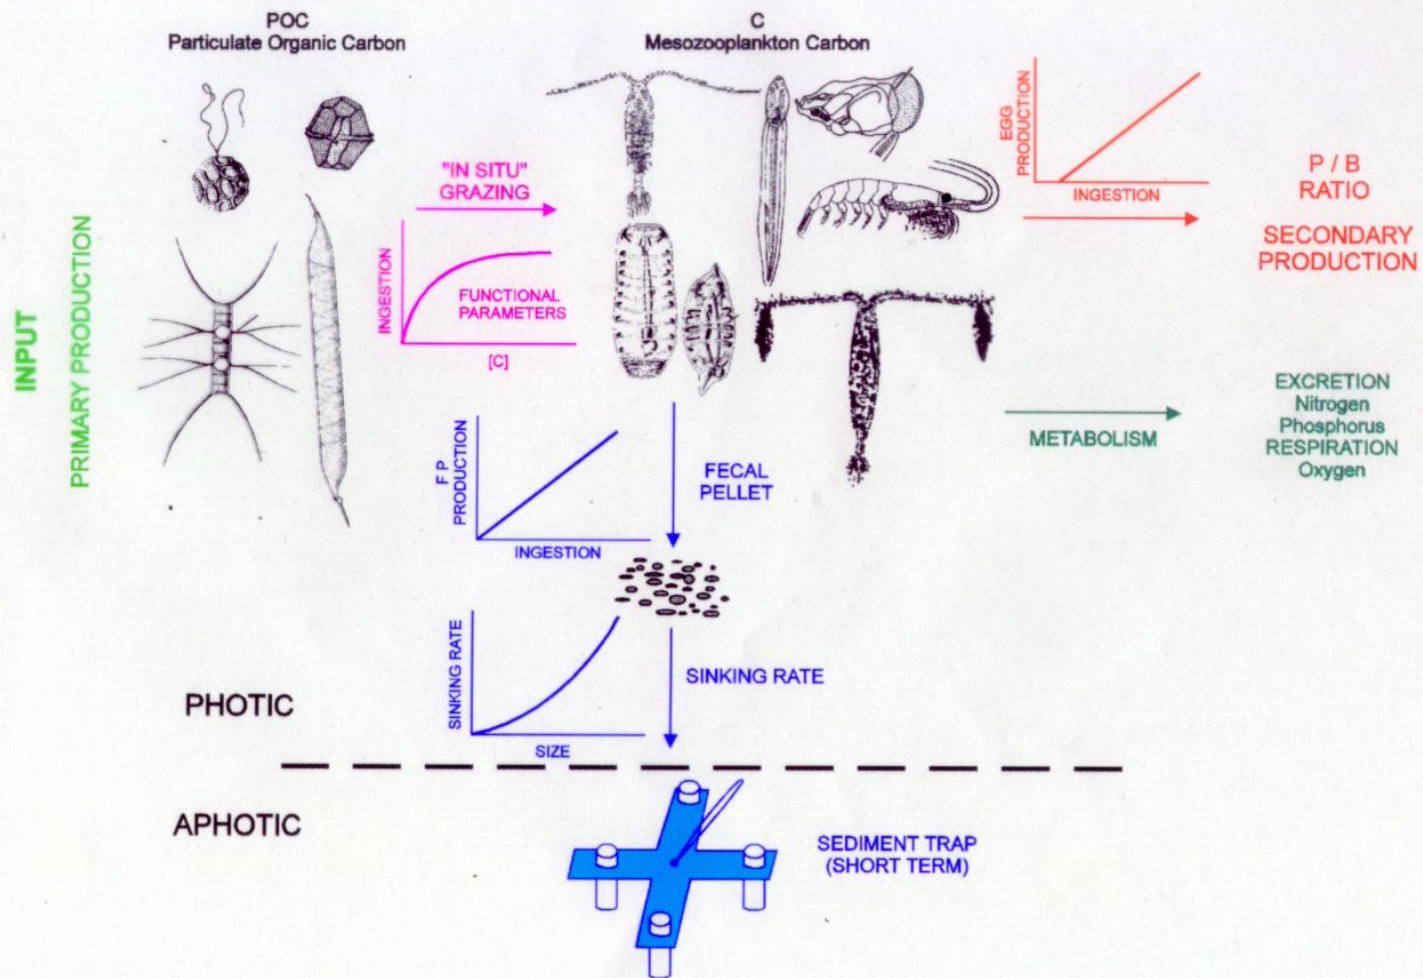 POC
Particulate Organic Carbon
C
Mesozooplankton Carbon
INPUT
PRIMARY PRODUCTION
"IN SITU"
GRAZING
INGESTION
FUNCTIONAL
PARAMETERS
[C]
EGG
PRODUCTION
INGESTION
P / B
RATIO
SECONDARY
PRODUCTION
METABOLISM
EXCRETION
Nitrogen
Phosphorus
RESPIRATION
Oxygen
F P
PRODUCTION
INGESTION
FECAL
PELLET
SINKING RATE
SIZE
SINKING RATE
PHOTIC
APHOTIC
SEDIMENT TRAP
(SHORT TERM)